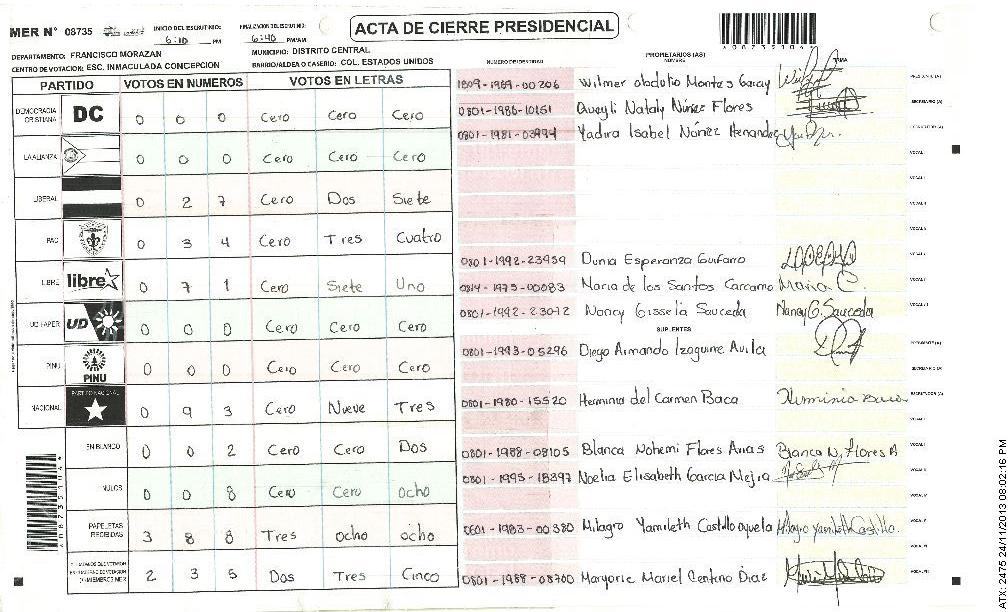 MER N° 08735
INICIO DEL ESCRUTINIO:
6:10 PM
FINALIZACION DEL ESCRUTINIO:
6:40 PM/AM
ACTA DE CIERRE PRESIDENCIAL
DEPARTAMENTO: FRANCISCO MORAZAN
MUNICIPIO: DISTRITO CENTRAL
CENTRO DE VOTACION: ESC. INMACULADA CONCEPCION
BARRIO/ALDEA O CASERIO: COL. ESTADOS UNIDOS
PARTIDO VOTOS EN NUMEROS VOTOS EN LETRAS
DEMOCRACIA CRISTIANA DC 0 0 0 Cero Cero Cero
LA ALIANZA 0 0 0 Cero Cero Cero
LIBERAL 0 2 7 Cero Dos Siete
PAC 0 3 4 Cero Tres Cuatro
LIBRE libre 0 7 1 Cero Siete Uno
UD FAPER UD 0 0 0 Cero Cero Cero
PINU PINU 0 0 0 Cero Cero Cero
NACIONAL PARTIDO NACIONAL 0 9 3 Cero Nueve Tres
EN BLANCO 0 0 2 Cero Cero Dos
NULOS 0 0 8 Cero Cero Ocho
PAPELETAS RECIBIDAS 3 8 8 Tres ocho ocho
2 3 5 Dos Tres Cinco
NUMERO DE IDENTIDAD
PROPIETARIOS (AS)
NOMBRE
FIRMA
1809-1989-00206 Wilmer Montes Garay PRESIDENTE (A)
0801-1986-10151 Nataly Núñez Flores SECRETARIO (A)
0801-1981-03994 Yadira Isabel Núñez Hernandez ESCRUTADOR (A)
VOCAL I
VOCAL II
0801-1992-23959 Dunia Esperanza Guifarro
Maria de los Santos Carcamo Maria C.
0801-1992-23012 Nancy Gissela Sauceda Nancy G. Sauceda
SUPLENTES
0801-1993-05296 Diego Armando Izaguirre Avila PRESIDENTE (A)
SECRETARIO (A)
0801-1980-15520 Herminia del Carmen Baca Herminia Baca ESCRUTADOR (A)
0801-1988-08105 Blanca Nohemi Flores Arias Blanca N, Flores A
0801-1995-18397 Noelia Elisabeth Garcia Mejia
0801-1983-00380 Milagro Yamileth Castillo Milagro Yamileth Castillo
0801-1988-08700 Marjorie Mariel Centeno Diaz
ATX: 2475 24/11/2013 08:02:16 PM